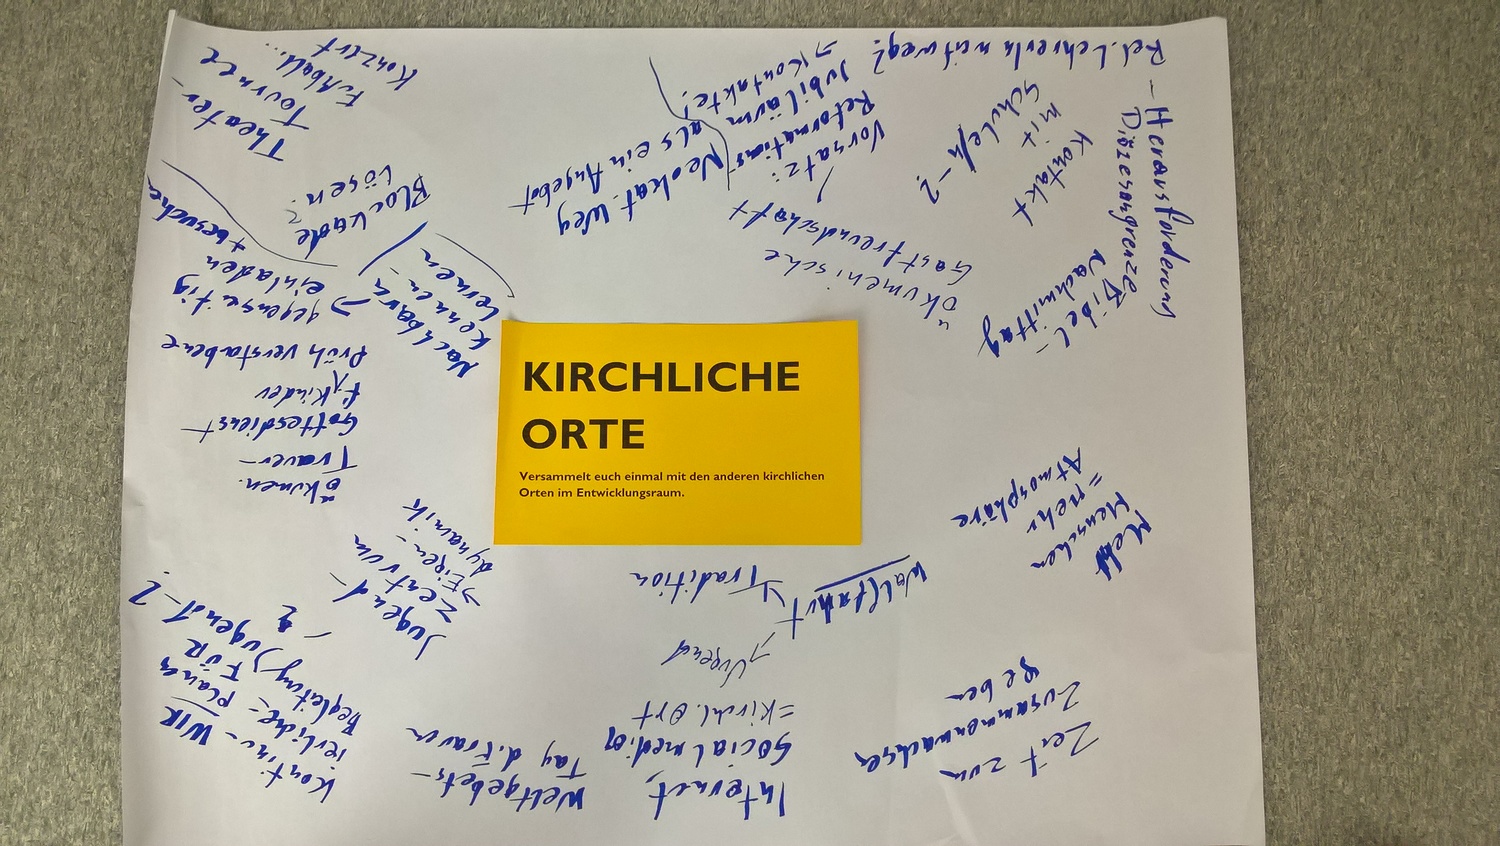 KIRCHLICHE
ORTE
Versammelt euch einmal mit den anderen kirchlichen
Orten im Entwicklungsraum.
Theater-
Tournee
Fußball...
Konzert
Blockade
lösen?
Nachbarn
kennen-
lernen
→ gegenseitig
einladen
+ besuche
Neokat. Weg
als ein Angebot
Vorsatz:
Reformations
Jubiläum
→ Kontakte!
ökumenische
Gastfreundschaft
Rel. Lehrer/in mit weg?
Kontakt
mit
Schule/n - ?
- Herausforderung
Diözesangrenze
Bibel-
Nachmittag
ökumen.
Trauer-
Gottesdienst
f. Kinder
früh verstorbene
Jugend-
Zentrum
→ Eigen-
dynamik
Kontinu-
ierliche
Begleitung
- WIR
planen
FÜR
Jugend - ?
Weltgebets-
Tag d. Frauen
Internet,
Social media
= Kirchl. Ort
→ Jugend
Wallfahrt
→ Tradition
Mehr
Menschen
= mehr
Atmosphäre
Zeit zum
Zusammenwachsen
geben